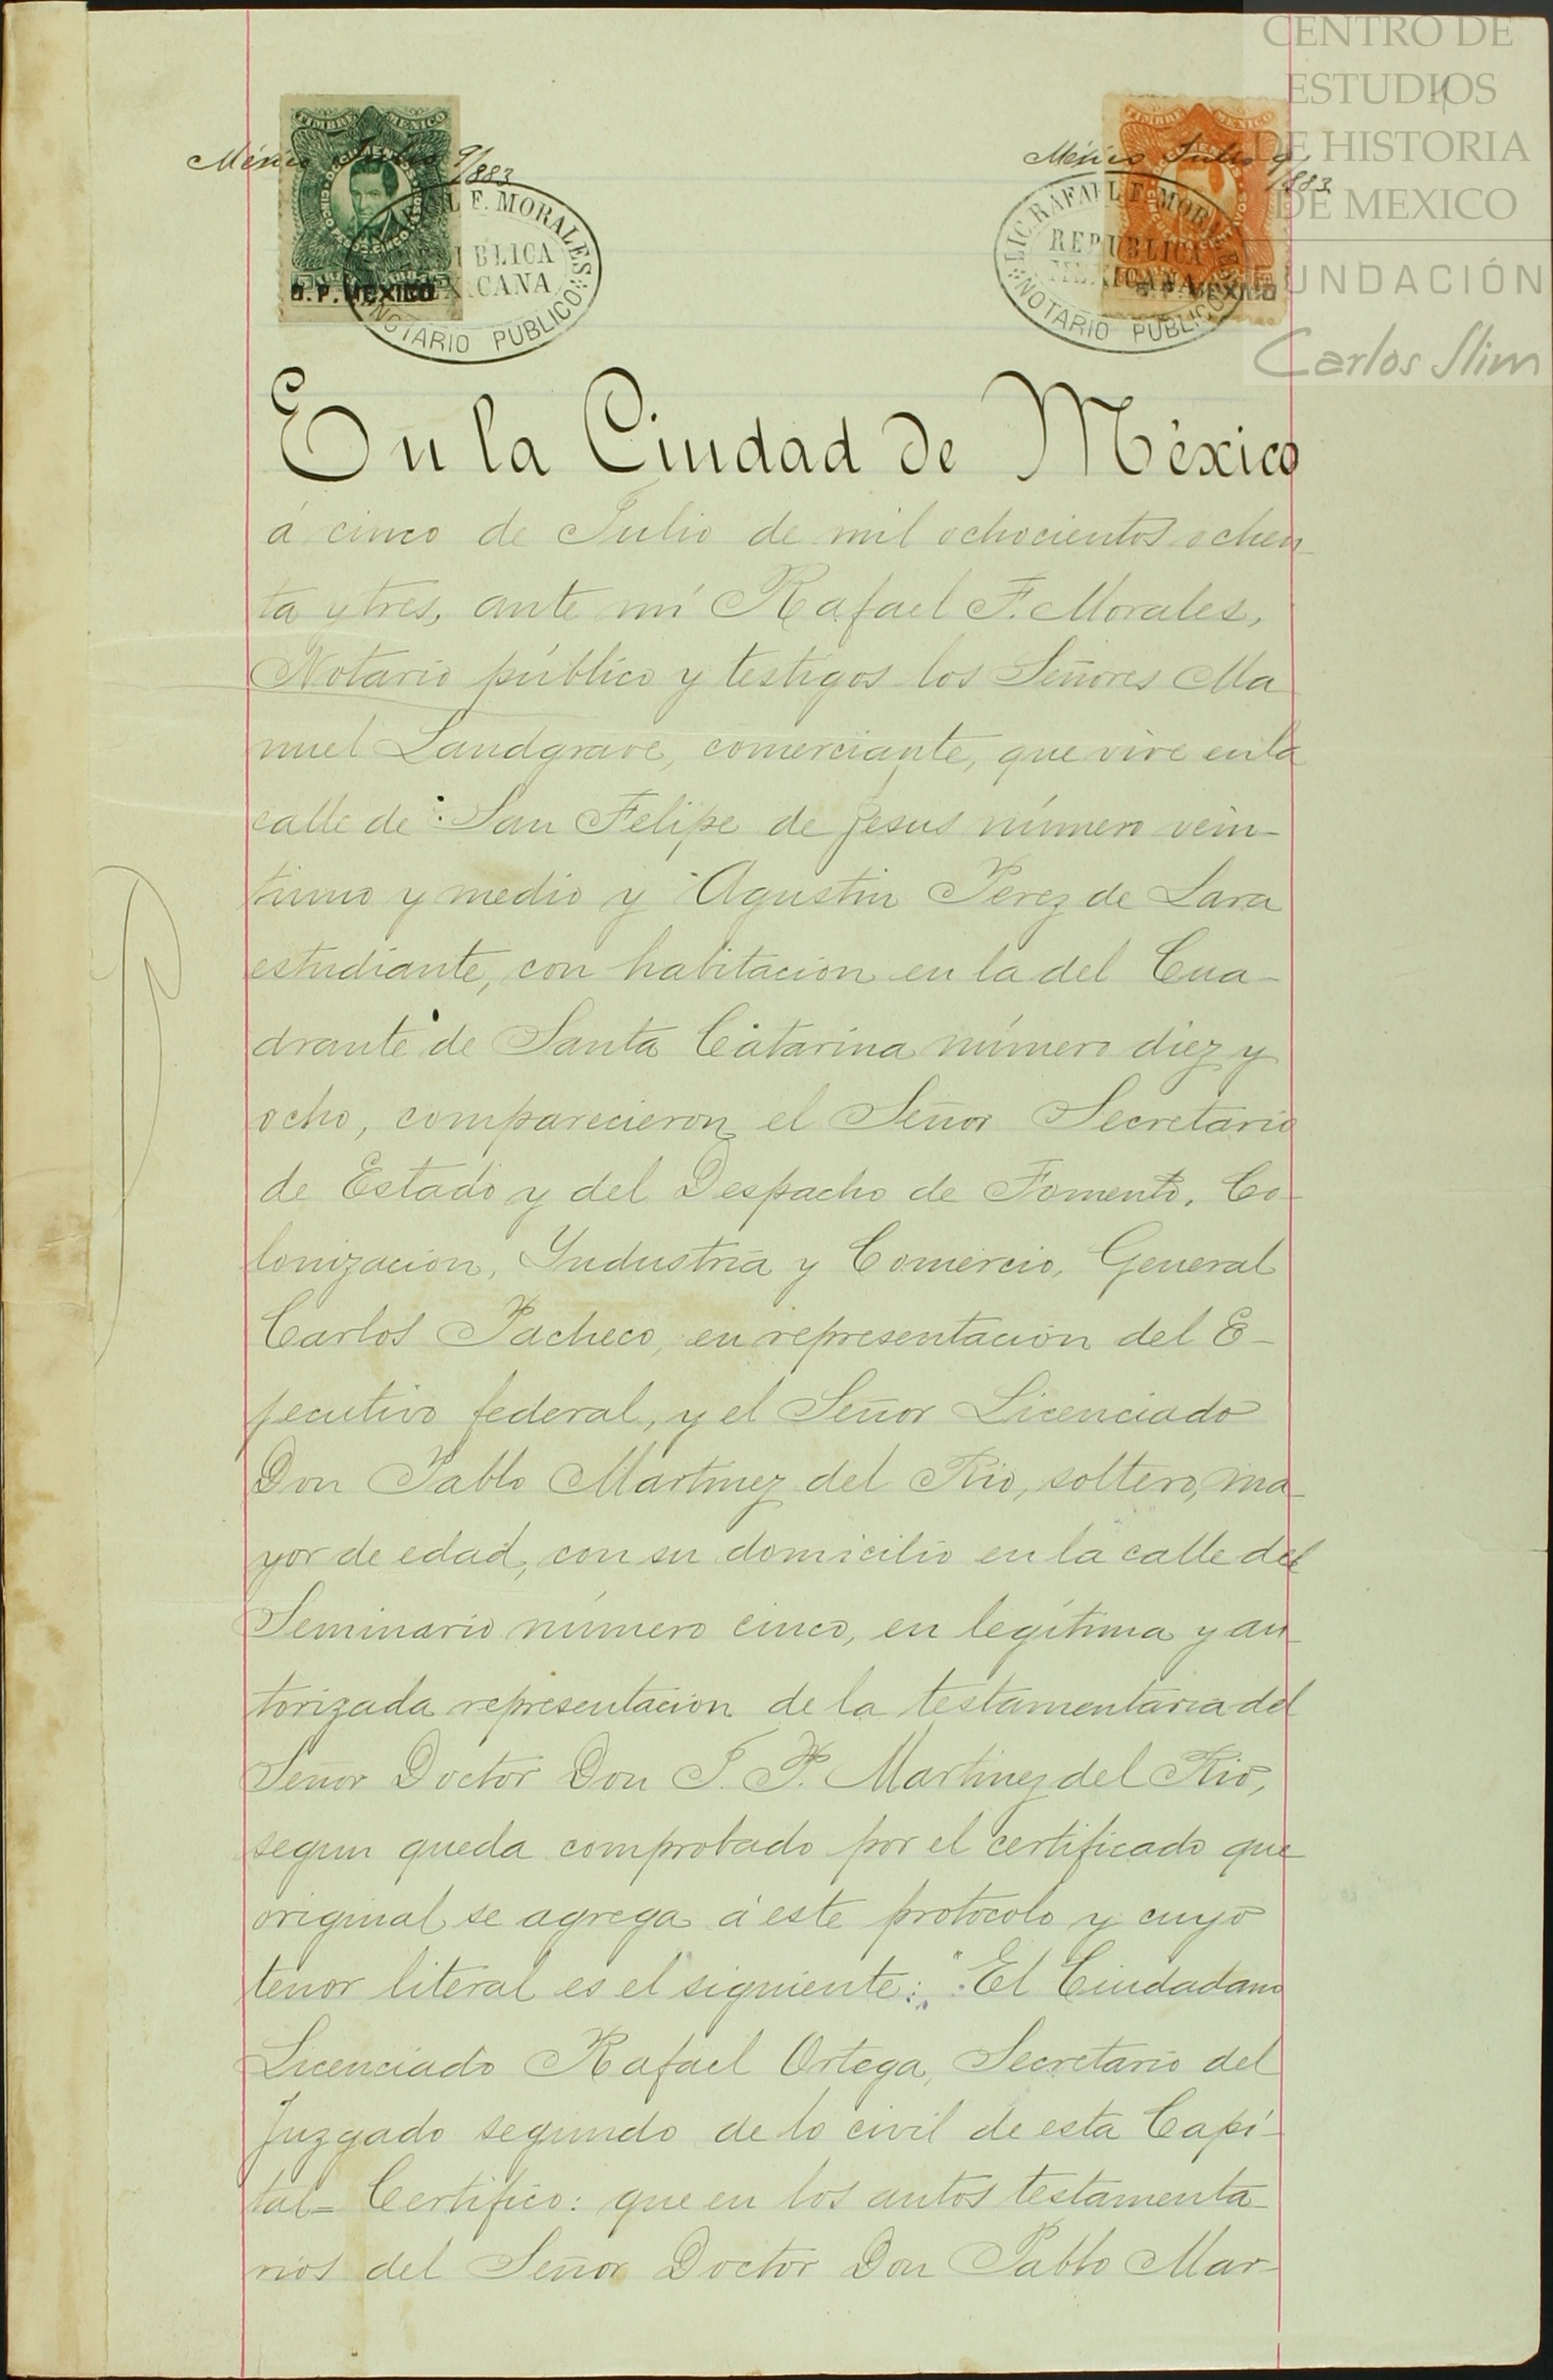 CENTRO DE
ESTUDIOS
DE HISTORIA
DE MEXICO
FUNDACIÓN
Carlos Slim
TIMBRE MEXICO
México Julio 9/883
L F. MORALES
BLICA
CANA
NOTARIO PUBLICO
D. P. MEXICO
TIMBRE MEXICO
México Julio 9/
1883
LIC RAFAEL F. MORALES
REPUBLICA
MEXICANA
NOTARIO PUBLICO
MEXICO
En la Ciudad de México
á cinco de Julio de mil ochocientos ochen
ta y tres, ante mí Rafael F. Morales,
Notario público y testigos los Señores Ma
nuel Landgrave, comerciante, que vive en la
calle de San Felipe de Jesus número vein-
tiuno y medio y Agustin Perez de Lara
estudiante, con habitación en la del Cua-
drante de Santa Catarina número diez y
ocho, comparecieron el Señor Secretario
de Estado y del Despacho de Fomento, Co-
lonización, Industria y Comercio, General
Carlos Pacheco, en representación del E-
jecutivo federal, y el Señor Licenciado
Don Pablo Martinez del Rio, soltero, ma-
yor de edad, con su domicilio en la calle del
Seminario número cinco, en legítima y au
torizada representación de la testamentaría del
Señor Doctor Don J. P. Martinez del Rio,
segun queda comprobado por el certificado que
original se agrega á este protocolo y cuyo
tenor literal es el siguiente: "El Ciudadano
Licenciado Rafael Ortega, Secretario del
Juzgado segundo de lo civil de esta Capi-
tal= Certifico: que en los autos testamenta-
rios del Señor Doctor Don Pablo Mar-